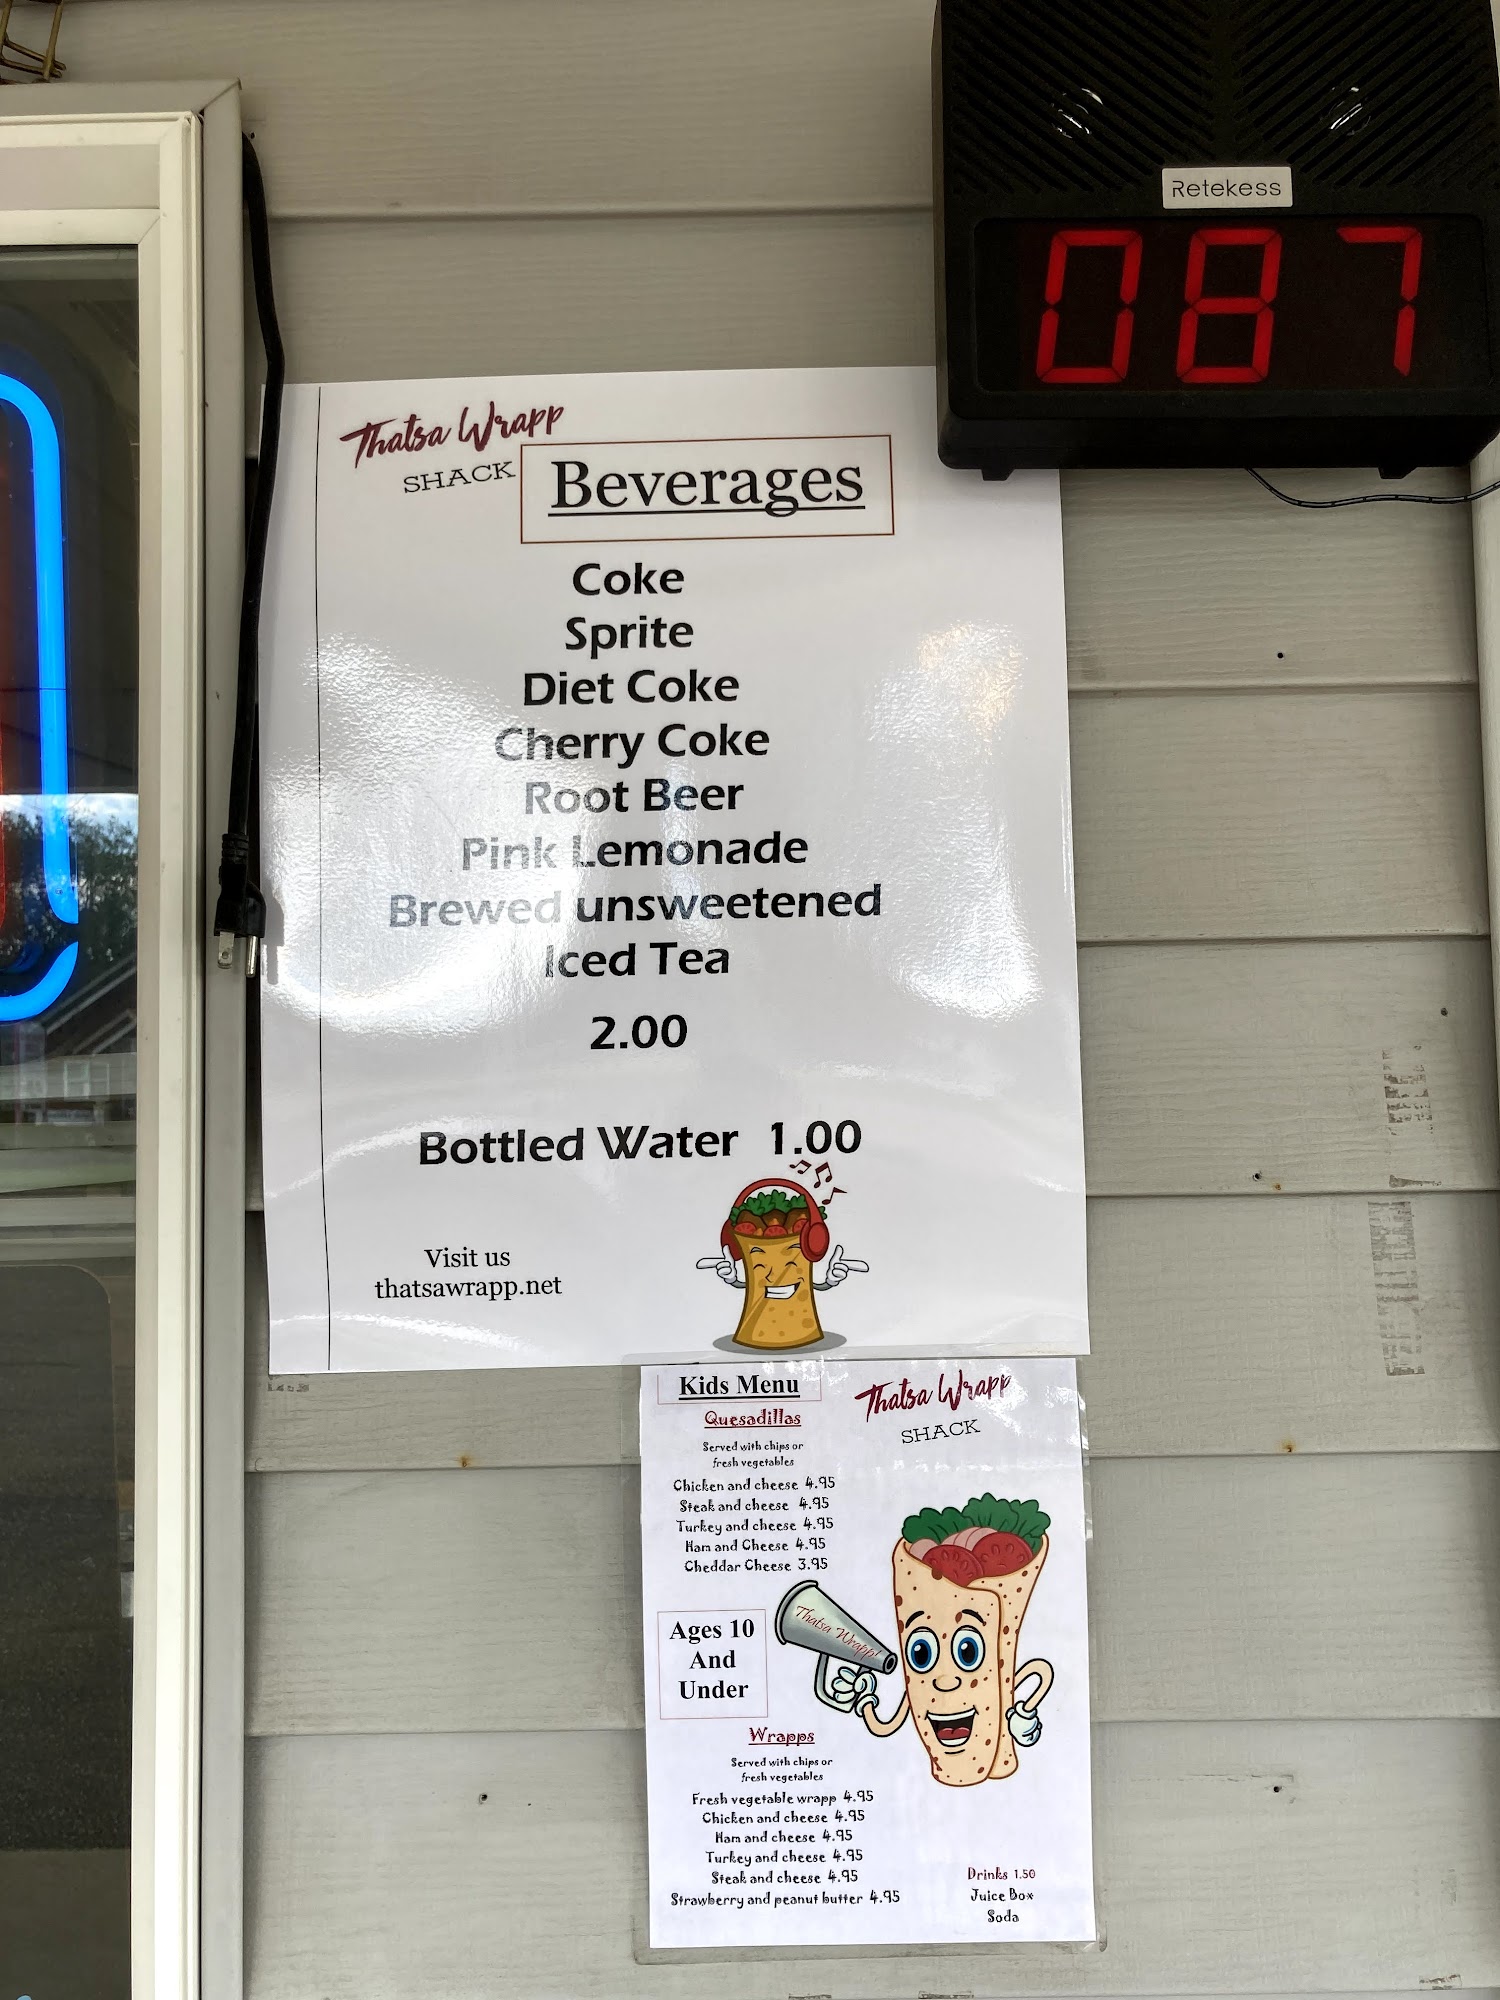 Retekess
087
Thatsa Wrapp
SHACK
Beverages
Coke
Sprite
Diet Coke
Cherry Coke
Root Beer
Pink Lemonade
Brewed unsweetened
Iced Tea
2.00
Bottled Water 1.00
Visit us
thatsawrapp.net
Kids Menu
Thatsa Wrapp
SHACK
Quesadillas
Served with chips or
fresh vegetables
Chicken and cheese 4.95
Steak and cheese 4.95
Turkey and cheese 4.95
Ham and Cheese 4.95
Cheddar Cheese 3.95
Thatsa Wrapp!
Ages 10
And
Under
Wrapps
Served with chips or
fresh vegetables
Fresh vegetable wrapp 4.95
Chicken and cheese 4.95
Ham and cheese 4.95
Turkey and cheese 4.95
Steak and cheese 4.95
Strawberry and peanut butter 4.95
Drinks 1.50
Juice Box
Soda